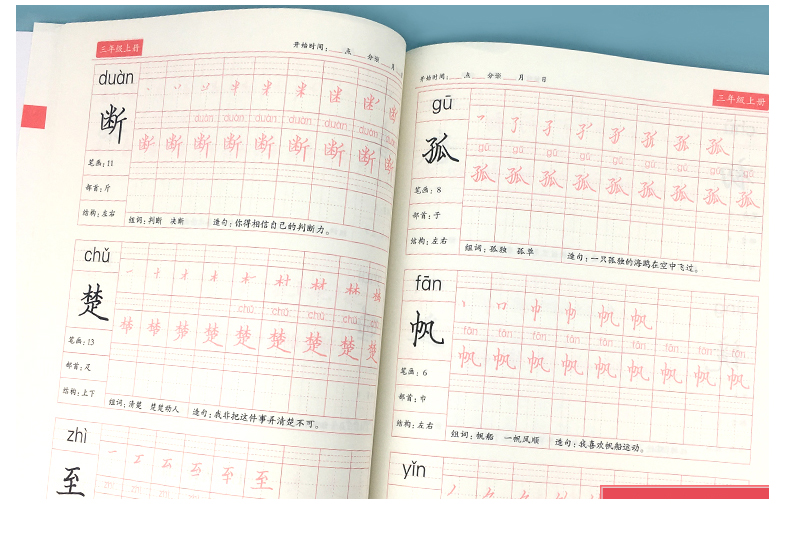 三年级上册
开始时间：__点__分　__月__日
duàn
断
duàn duàn duàn duàn duàn duàn duàn
断 断 断 断 断 断 断 断 断
笔画：11
部首：斤
结构：左右
组词：判断　决断　造句：你得相信自己的判断力。
chǔ
楚
chǔ chǔ chǔ chǔ chǔ
楚 楚 楚 楚 楚 楚
笔画：13
部首：疋
结构：上下
组词：清楚　楚楚动人　造句：我非把这件事弄清楚不可。
zhì
至
开始时间：__点__分　__月__日
三年级上册
gū
孤
gū gū gū gū gū gū gū
孤 孤 孤 孤 孤 孤 孤 孤
笔画：8
部首：子
结构：左右
组词：孤独　孤单　造句：一只孤独的海鸥在空中飞过。
fān
帆
fān fān fān fān fān fān fān fān
帆 帆 帆 帆 帆 帆 帆 帆 帆
笔画：6
部首：巾
结构：左右
组词：帆船　一帆风顺　造句：我喜欢帆船运动。
yǐn